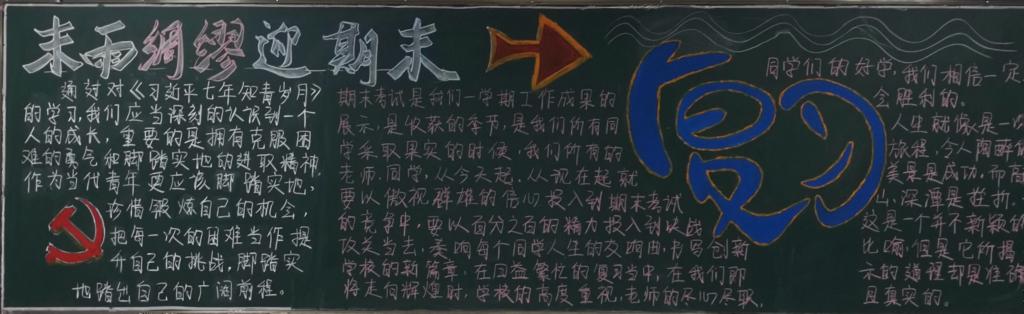 未雨绸缪迎期末
通过对《习近平七年知青岁月》
的学习,我们应当深刻的认识到一个
人的成长,重要的是拥有克服困
难的勇气和脚踏实地的进取精神
作为当代青年更应该脚踏实地,
珍惜锻炼自己的机会,
把每一次的困难当作提
升自己的挑战,脚踏实
地踏出自己的广阔前程。
期末考试是我们一学期工作成果的
展示,是收获的季节,是我们所有同
学采取果实的时候,我们所有的
老师.同学,从今天起,从现在起就
要以傲视群雄的信心投入到期末考试
的竞争中,要以百分之百的精力投入到以战
攻关当去,奏响每个同学人生的交响曲,书写创新
学校的新篇章.在日益繁忙的复习当中,在我们即
将走向辉煌时,学校的高度重视,老师的尽心尽取,
复习
同学们的好学,我们相信一定
会胜利的。
人生就像是一
旅程,令人陶醉的
美景是成功,而高
山,深潭是挫折.
这是一个并不新颖的
比喻,但是它所揭
示的道理却是准确
且真实的。